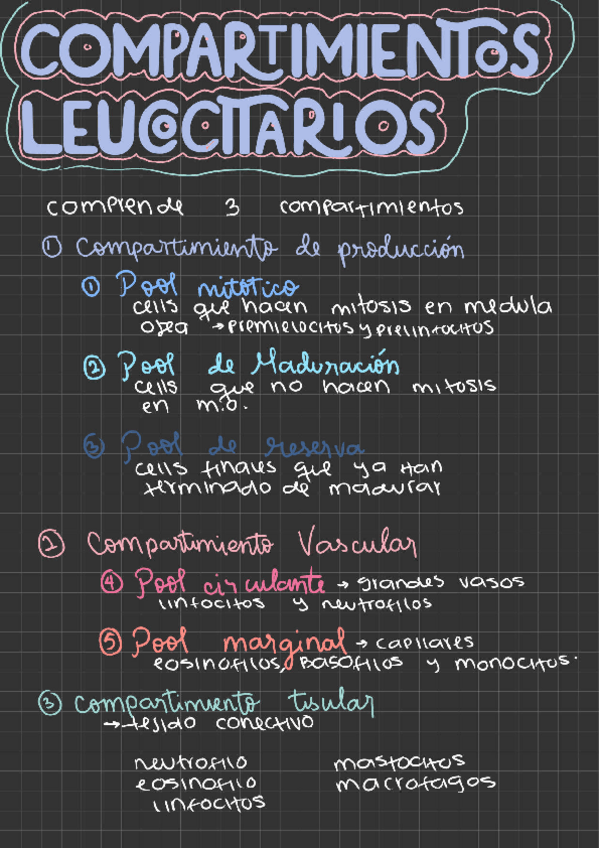 COMPARTIMIENTOS
LEUCOCITARIOS
comprende 3 compartimientos
① Compartimiento de producción
① Pool mitotico
cells que hacen mitosis en medula
osea → premielocitos y prelinfocitos
② Pool de Maduración
cells que no hacen mitosis
en m.o.
③ Pool de reserva
cells finales que ya han
terminado de madurar
② Compartimiento Vascular
④ Pool circulante → grandes vasos
linfocitos y neutrofilos
⑤ Pool marginal → capilares
eosinofilos, Basofilos y monocitos.
③ compartimiento tisular
→ tejido conectivo
neutrofilo mastocitos
eosinofilo macrofagos
linfocitos